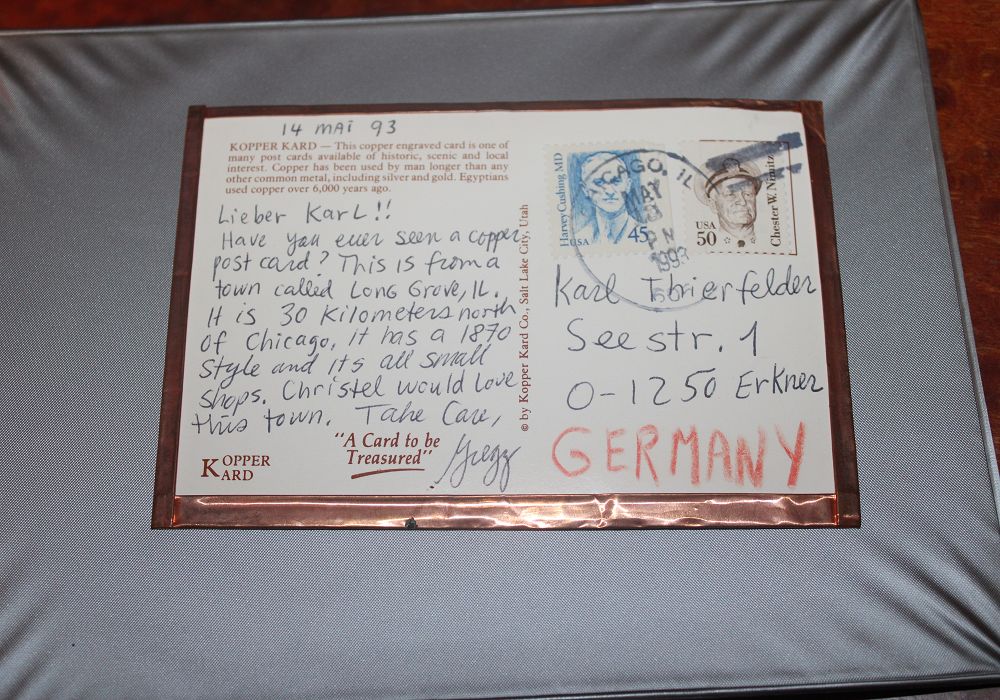 14 MAI 93
KOPPER KARD — This copper engraved card is one of
many post cards available of historic, scenic and local
interest. Copper has been used by man longer than any
other common metal, including silver and gold. Egyptians
used copper over 6,000 years ago.
Lieber Karl!!
Have you ever seen a copper
post card? This is from a
town called Long Grove, IL.
It is 30 Kilometers north
of Chicago, it has a 1870
style and its all small
shops. Christel would love
this town. Take Care,
Gregg
"A Card to be
Treasured"
KOPPER
KARD
© by Kopper Kard Co., Salt Lake City, Utah
Harvey Cushing MD
USA 45
USA
50
Chester W. Nimitz
CHICAGO, IL
MAY
PM
1993
Karl Thierfelder
Seestr. 1
O-1250 Erkner
GERMANY